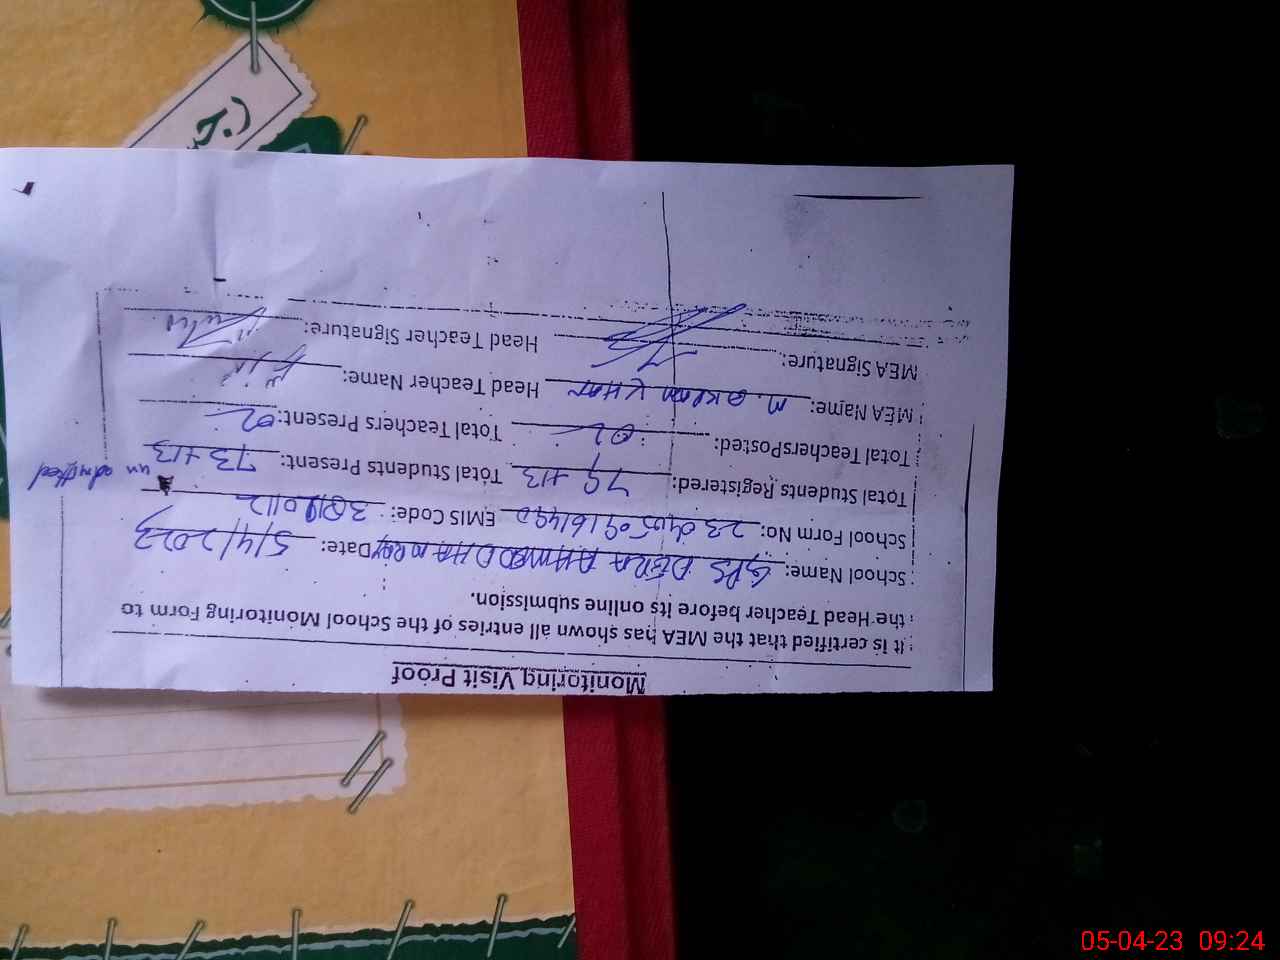 Monitoring Visit Proof
It is certified that the MEA has shown all entries of the School Monitoring Form to
the Head Teacher before its online submission.
School Name: GPS DERA AHMED DHAMRAY Date: 5/4/2023
School Form No: EMIS Code:
Total Students Registered: 79 +13 Total Students Present: 73 +13 un admitted
Total TeachersPosted: 02 Total Teachers Present: 02
MEA Name: M. AKRAM KHAN Head Teacher Name:
MEA Signature: Head Teacher Signature:
05-04-23 09:24